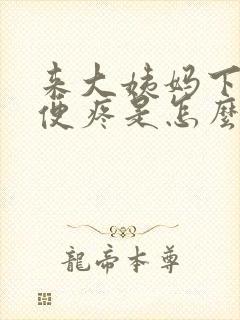 来大姨妈下
便疼是怎麽
龍帝本尊